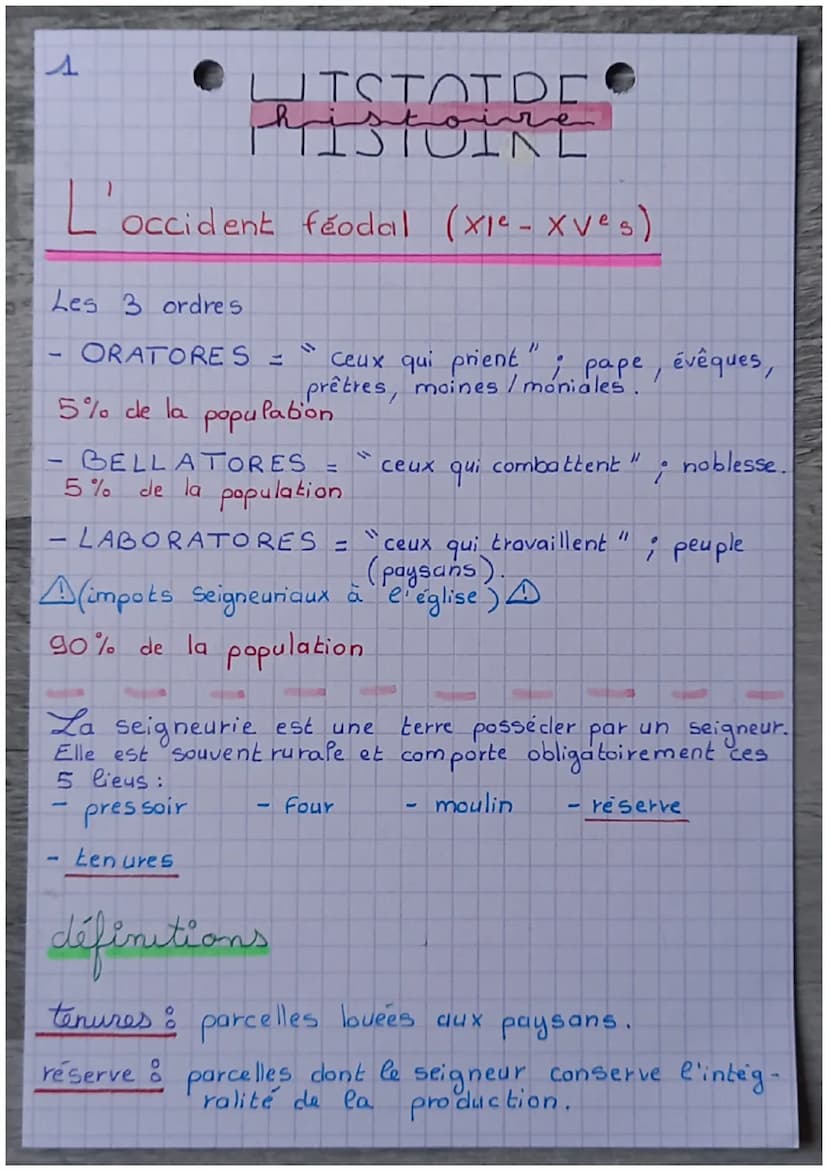 1
HISTOIRE
histoire
L'occident féodal (XIe - XVe s)
Les 3 ordres
- ORATORES = "ceux qui prient" ; pape, évêques,
prêtres, moines / moniales.
5% de la population
- BELLATORES = "ceux qui combattent" ; noblesse.
5% de la population
- LABORATORES = "ceux qui travaillent" ; peuple
(paysans).
⚠(impots seigneuriaux à l'église)⚠
90% de la population
La seigneurie est une terre posséder par un seigneur.
Elle est souvent rurale et comporte obligatoirement ces
5 lieus :
- pressoir - four - moulin - réserve
- tenures
définitions
tenures : parcelles louées aux paysans.
réserve : parcelles dont le seigneur conserve l'intég-
ralité de la production.